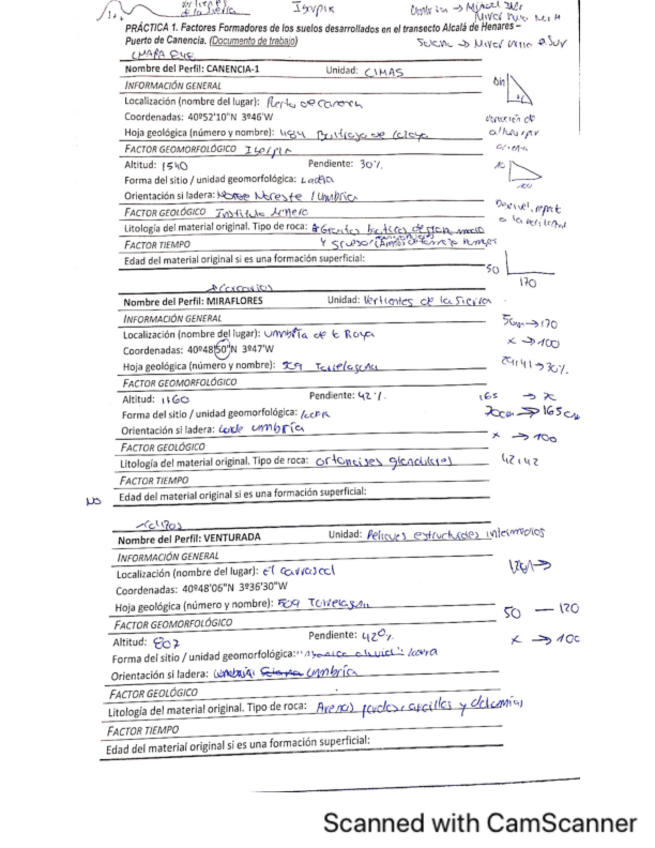 Isopix
PRÁCTICA 1. Factores Formadores de los suelos desarrollados en el transecto Alcalá de Henares –
Puerto de Canencia. (Documento de trabajo)
Nombre del Perfil: CANENCIA-1 Unidad: CIMAS
INFORMACIÓN GENERAL
Localización (nombre del lugar): Puerto de Canencia
Coordenadas: 40º52'10"N 3º46'W
Hoja geológica (número y nombre): 484 Buitrago de Lozoya
FACTOR GEOMORFOLÓGICO
Altitud: 1540 Pendiente: 30%
Forma del sitio / unidad geomorfológica: Ladera
Orientación si ladera: Noreste / Umbría
FACTOR GEOLÓGICO Instituto Minero
Litología del material original. Tipo de roca:
FACTOR TIEMPO
Edad del material original si es una formación superficial:
50
170
Nombre del Perfil: MIRAFLORES Unidad: Vertientes de la Sierra
INFORMACIÓN GENERAL
Localización (nombre del lugar): Umbría de la Raya
50cm → 170
Coordenadas: 40º48'50"N 3º47'W
x → 100
Hoja geológica (número y nombre): 509 Torrelaguna
29,41 → 30%
FACTOR GEOMORFOLÓGICO
Altitud: 1160 Pendiente: 42%
Forma del sitio / unidad geomorfológica: ladera
70cm → 165cm
Orientación si ladera: umbría
x → 100
FACTOR GEOLÓGICO
Litología del material original. Tipo de roca: ortoneises glandulares
42,42
FACTOR TIEMPO
NO Edad del material original si es una formación superficial:
Nombre del Perfil: VENTURADA Unidad: Relieves estructurales intermedios
INFORMACIÓN GENERAL
Localización (nombre del lugar): El Carrascal
Coordenadas: 40º48'06"N 3º36'30"W
Hoja geológica (número y nombre): 509 Torrelaguna
50 — 120
FACTOR GEOMORFOLÓGICO
Altitud: 807 Pendiente: 42%
x → 100
Forma del sitio / unidad geomorfológica: ladera
Orientación si ladera: umbría
FACTOR GEOLÓGICO
Litología del material original. Tipo de roca: Arenas pardas, arcillas y dolomías
FACTOR TIEMPO
Edad del material original si es una formación superficial:
Scanned with CamScanner